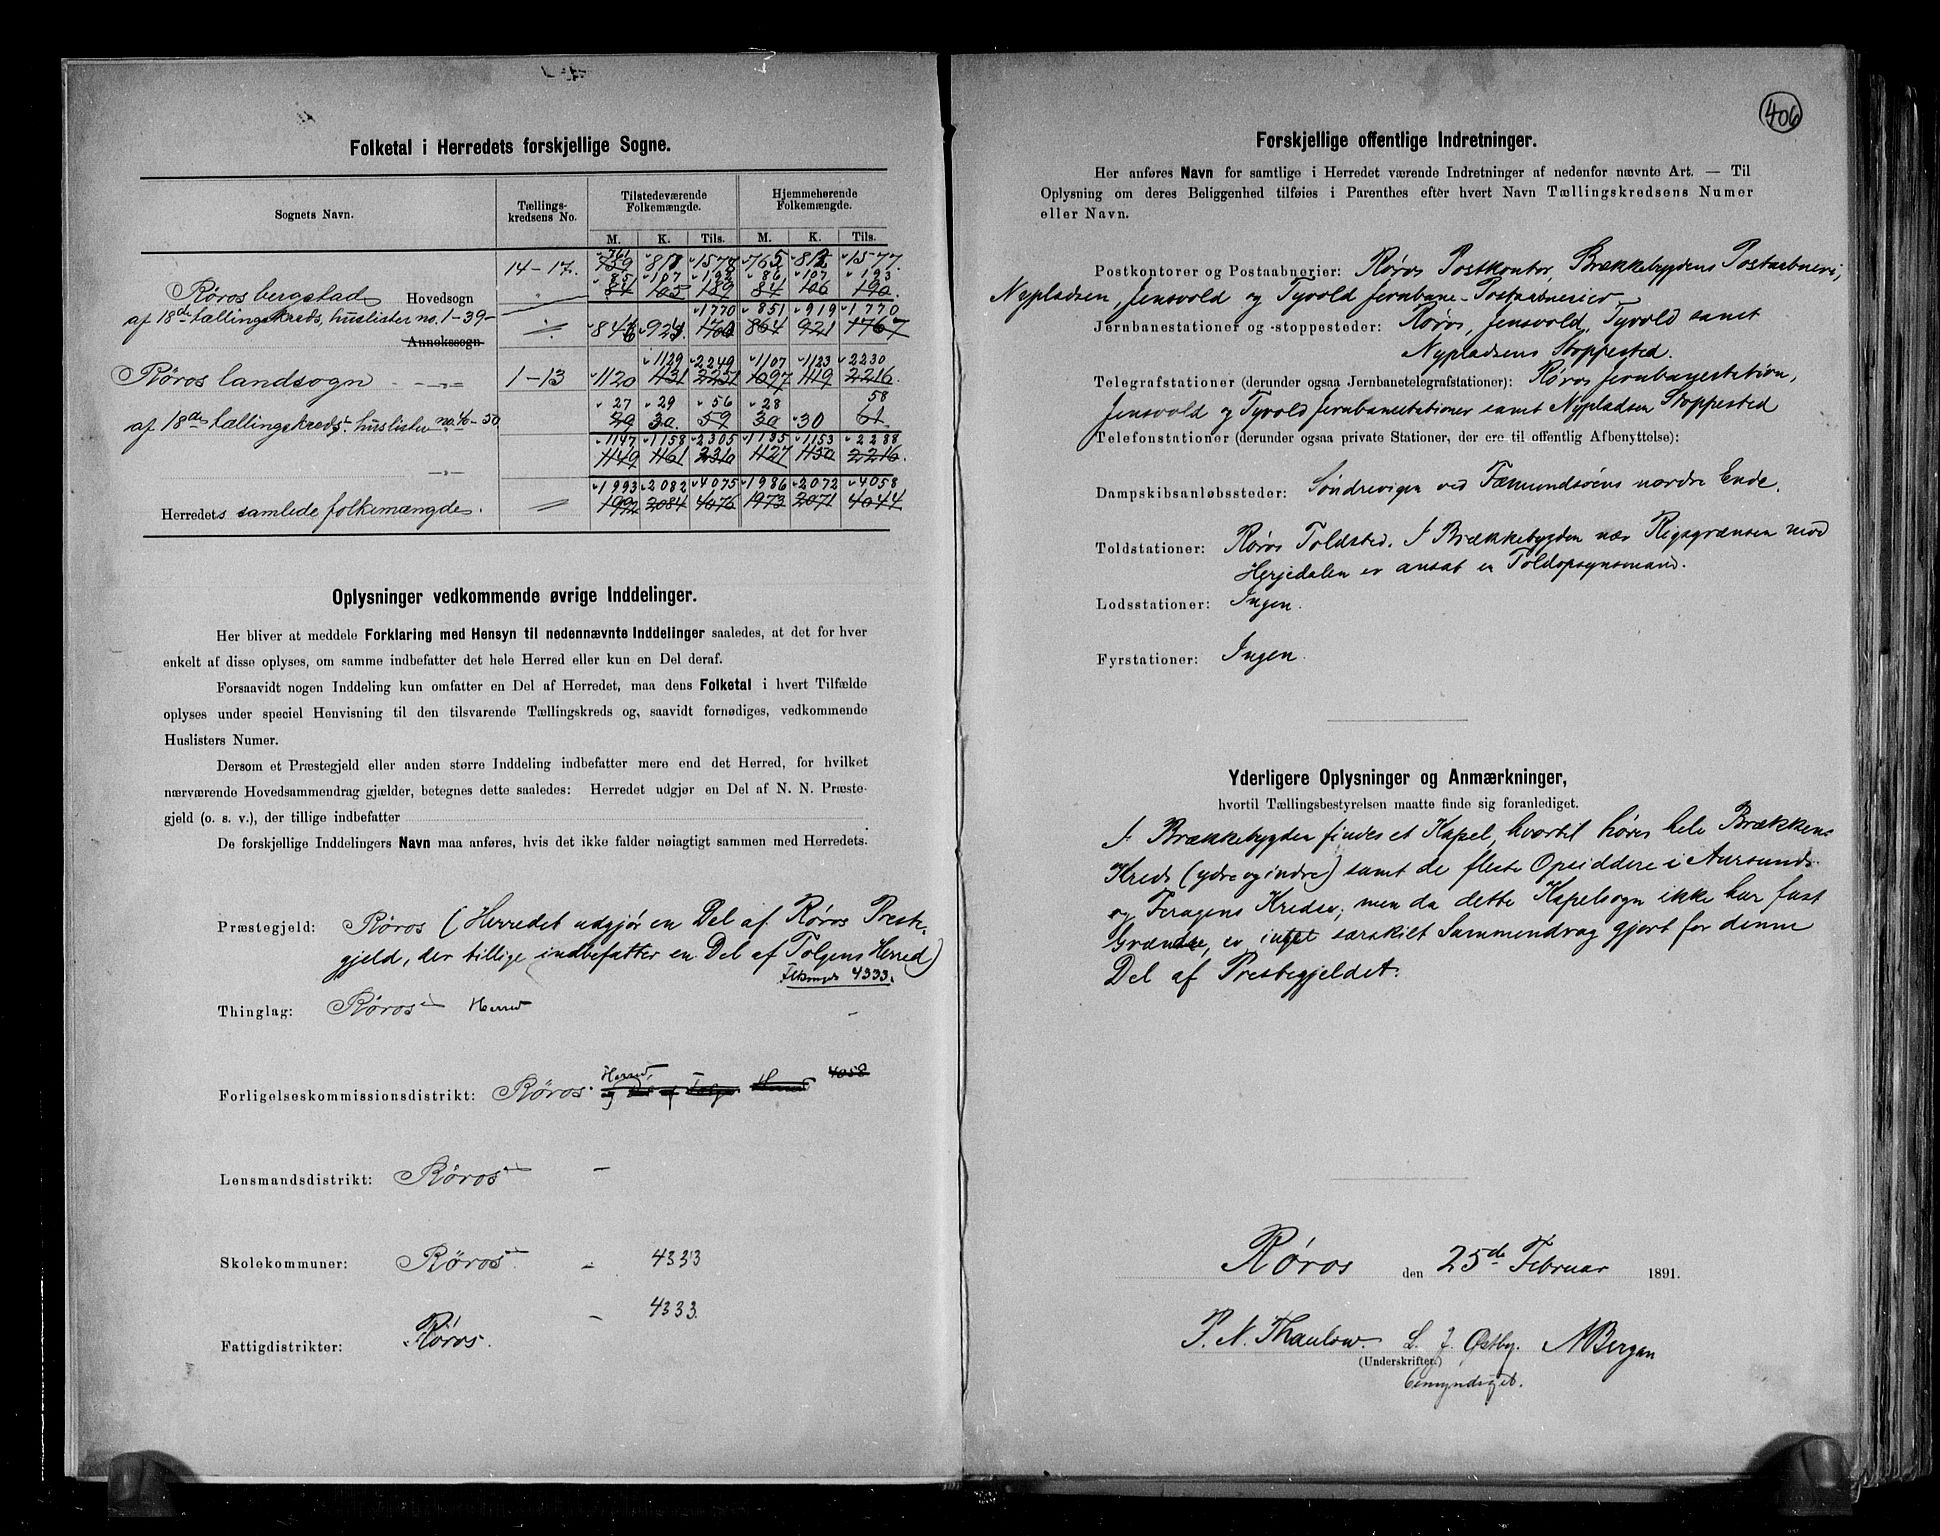 Folketal i Herredets forskjellige Sogne.
Sognets Navn.
Tællings-
kredsens No.
Tilstedeværende
Folkemængde.
Hjemmehørende
Folkemængde.
M. K. Tils. M. K. Tils.
761
14-17. 759 817 1578 765 812 1577.
85 107 192 86 107 193
Røros bergstad Hovedsogn 84 105 189 84 106 190.
1770 851 919 1770
af 18de tællingskreds, huslister no. 1-39-
846 924 864 921 1767
Annekssogn
1129 2249 1107 1123 2230
Røros landsogn 1-13 1120 1131 2251 1097 1119 2216.
27 29 56 28 58
af 18de tællingskreds huslister no. 40-50 29 30. 59 30 30 61.
1147 1158 2305 1135 1153 2288
1149 1161 2310 1127 1150 2216.
1993 2082 4075 1986 2072 4058
Herredets samlede folkemængde. 1992 2084 4076 1973 2071 4044
Oplysninger vedkommende øvrige Inddelinger.
Her bliver at meddele Forklaring med Hensyn til nedennævnte Inddelinger saaledes, at det for hver
enkelt af disse oplyses, om samme indbefatter det hele Herred eller kun en Del deraf.
Forsaavidt nogen Inddeling kun omfatter en Del af Herredet, maa dens Folketal i hvert Tilfælde
oplyses under speciel Henvisning til den tilsvarende Tællingskreds og, saavidt fornødiges, vedkommende
Huslisters Numer.
Dersom et Præstegjeld eller anden større Inddeling indbefatter mere end det Herred, for hvilket
nærværende Hovedsammendrag gjælder, betegnes dette saaledes: Herredet udgjør en Del af N. N. Præste-
gjeld (o. s. v.), der tillige indbefatter
De forskjellige Inddelingers Navn maa anføres, hvis det ikke falder nøiagtigt sammen med Herredets.
Præstegjeld: Røros (Herredet udgjør en Del af Røros Prest-
gjeld, der tillige indbefatter en Del af Tolgens Herred)
4333.
Thinglag: Røros Herred
Herred,
Forligelseskommissionsdistrikt: Røros og Del af Tolgen Herred 4058
Lensmandsdistrikt: Røros
Skolekommuner: Røros - 4333
Fattigdistrikter: Røros. - 4333.
406
Forskjellige offentlige Indretninger.
Her anføres Navn for samtlige i Herredet værende Indretninger af nedenfor nævnte Art. — Til
Oplysning om deres Beliggenhed tilføies i Parenthes efter hvert Navn Tællingskredsens Numer
eller Navn.
Postkontorer og Postaabnerier: Røros Postkontor, Brækkebygdens Postaabneri,
Nypladsen, Jensvold og Tyvold Jernbane-Postaabnerier
Jernbanestationer og -stoppesteder: Røros, Jensvold, Tyvold samt
Nypladsens Stoppested.
Telegrafstationer (derunder ogsaa Jernbanetelegrafstationer): Røros Jernbanestation,
Jensvold og Tyvold Jernbanestationer samt Nypladsen Stoppested
Telefonstationer (derunder ogsaa private Stationer, der ere til offentlig Afbenyttelse):
Dampskibsanløbssteder: Søndrevigen ved Fæmundsøens nordre Ende.
Toldstationer: Røros Toldsted. I Brækkebygden nær Rigsgrænsen mod
Herjedalen er ansat en Toldopsynsmand.
Lodsstationer: Ingen.
Fyrstationer: Ingen.
Yderligere Oplysninger og Anmærkninger,
hvortil Tællingsbestyrelsen maatte finde sig foranlediget.
I Brækkebygden findes et Kapel, hvortil hører hele Brækkens
Kreds (ydre og indre) samt de fleste Opsiddere i Aursunds
og Feragens Kredse; men da dette Kapelsogn ikke har fast
Grændse, er intet særskilt Sammendrag gjort for denne
Del af Prestegjeldet.
Røros den 25de Februar 1891.
P. N. Thaulow. L. J. Østby. N Bergan
(Underskrifter.)
bemyndiget.